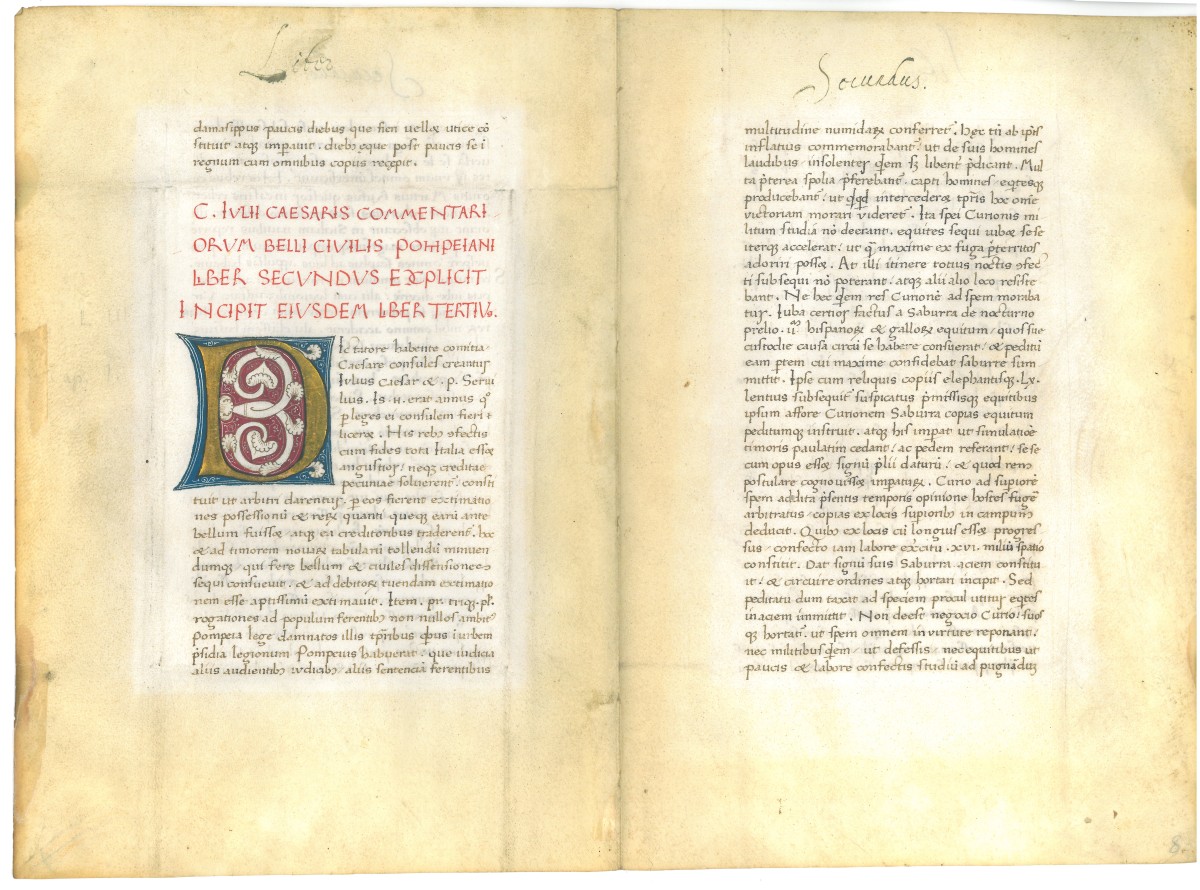 Liber
damasippus paucis diebus que fieri uellet utice cō
stituit atq; imꝑauit. dieb; eque post paucis se ī
regnum cum omnibus copiis recepit.
C. IVLII CAESARIS COMMENTARI
ORVM BELLI CIVILIS POMPEIANI
LIBER SECVNDVS EXPLICIT
INCIPIT EIVSDEM LIBER TERTIVS.
DIctatore habente comitia
Caesare consules creantur
Iulius Caesar & .p. Serui
lius. Is .n. erat annus q°
ꝑ leges ei consulem fieri
liceret. His reb; ꝯfectis
cum fides tota Italia esset
angustior/ neq; creditae
pecuniae soluerent. consti
tuit ut arbitri darentur. ꝑ eos fierent extimatio
nes possessionū & rerꝝ quanti queq; earū ante
bellum fuisset atq; ea creditoribus traderent. hoc
& ad timorem nouarꝝ tabularū tollendū minuen
dumq; qui fere bellum & ciuiles dissensiones
sequi consueuit. & ad debitorꝝ tuendam extimatio
nem esse aptissimū extimauit. Item .pr. triq; pl.
rogationes ad populum ferentib; non nullos ambit°
Pompeia lege damnatos illis tꝑribus qbus ī urbem
p̄sidia legionum Pompeius habuerat. que iudicia
aliis audientib; iudicib; aliis sentenciā ferentibus
Secundus.
multitudine numidarꝝ conferret. Hęc tū ab ip̄is
inflatius commemorabant. ut de suis homines
laudibus insolenter qdem sꝫ libent p̄dicant. Mul
ta p̄terea spolia p̄ferebant. capti homines eqtesq;
producebant. ut qcqd intercederet tꝑris hoc om̄e
uictoriam morari uideret. Ita spei Curionis mi
litum studia nō deerant. equites sequi iubet sese
iterq; accelerat. ut q̄ maxime ex fuga p̄territos
adoriri posset. At illi itinere totius noctis ꝯfec
ti subsequi nō poterant. atq; alii alio loco resiste
bant. Ne hec qdem res Curionē ad spem moraba
tur. Iuba certior factus a Saburra de nocturno
prelio .ii. hispanorꝝ & gallorꝝ equitum/ quos sue
custodie causa circū se habere consuerat/ & peditū
eam ꝑtem cui maxime confidebat saburre sum
mittit. Ipse cum reliquis copiis elephantisq; .Lx.
lentius subsequit suspicatus p̄missisq; equitibus
ipsum affore Curionem Saburra copias equitum
peditumq; instruit. atq; his imꝑat ut simulatiōe
timoris paulatim cedant/ ac pedem referant. sese
cum opus esset signū p̄lii daturū/ & quod rem
postulare cognouisset imꝑaturꝝ. Curio ad suꝑiorē
spem addita p̄sentis temporis opinione hostes fugē
arbitratus/ copias ex locis suꝑiorib; in campum
deducit. Quib; ex locis cū longius esset progres
sus/ confecto iam labore exercitu .xvi. miliū spatio
constitit. Dat signū suis Saburra aciem constitu
it/ & circuire ordines atq; hortari incipit. Sed
peditatu dum taxat ad speciem procul utitur eqtes
in aciem immittit. Non deest negocio Curio/ suos
q; hortat. ut spem omnem in uirtute reponant.
nec militibus qdem/ ut defessis/ nec equitibus ut
paucis & labore confectis studiū ad pugnādū
8.